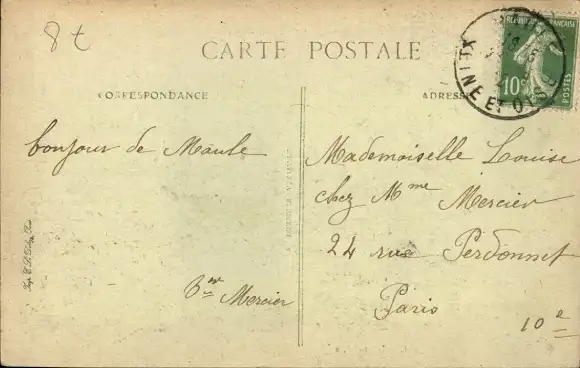 8t
CARTE POSTALE
CORRESPONDANCE
ADRESSE
RÉPUBLIQUE FRANÇAISE
10c
POSTES
SEINE ET OISE
bonjour de Maule
Bon Mercier
Mademoiselle Louise
chez Mme Mercier
24 rue Perdonnet
Paris
10e